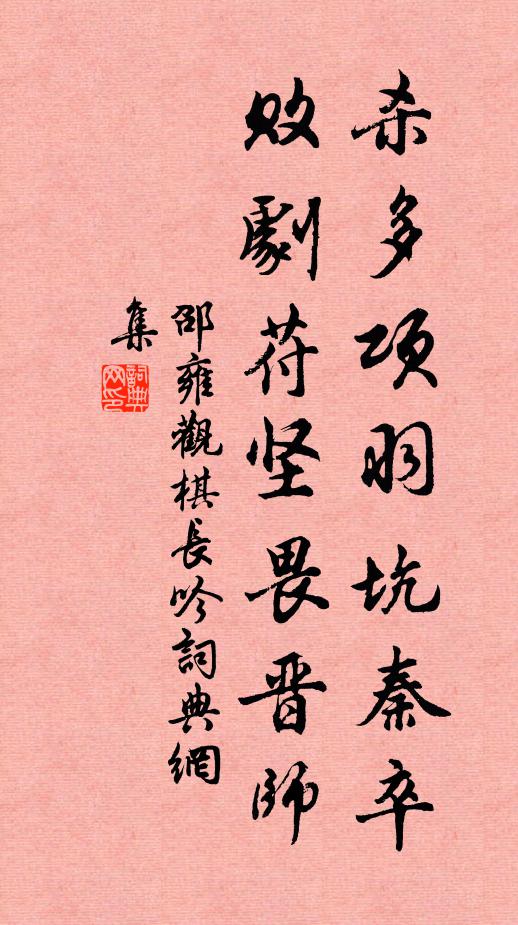 杀多项羽坑秦卒
败剧苻坚畏晋師
邵雍觀棋長吟詞典網
集
詞典网印